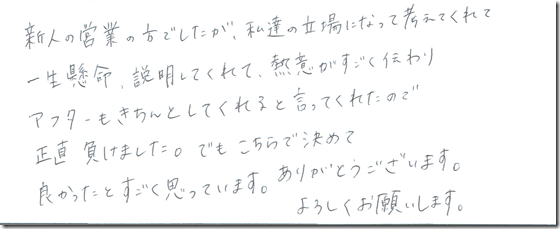 新人の営業の方でしたが、私達の立場になって考えてくれて
一生懸命、説明してくれて、熱意がすごく伝わり
アフターもきちんとしてくれると言ってくれたので
正直 負けました。でも こちらで決めて
良かったとすごく思っています。ありがとうございます。
よろしくお願いします。